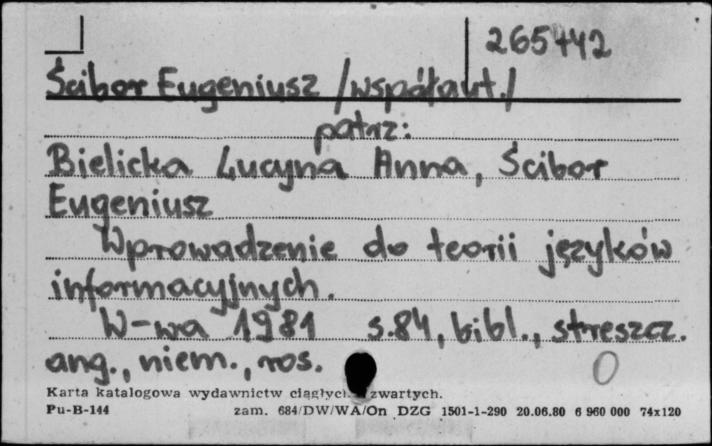 265442
Ścibor Eugeniusz /współaut./
patrz:
Bielicka Lucyna Anna, Ścibor
Eugeniusz
Wprowadzenie do teorii języków
informacyjnych.
W-wa 1981 s.84, bibl., streszcz.
ang., niem., ros.
0
Karta katalogowa wydawnictw ciągłych zwartych.
Pu-B-144 zam. 684/DW/WA/On DZG 1501-1-290 20.06.80 6 960 000 74x120